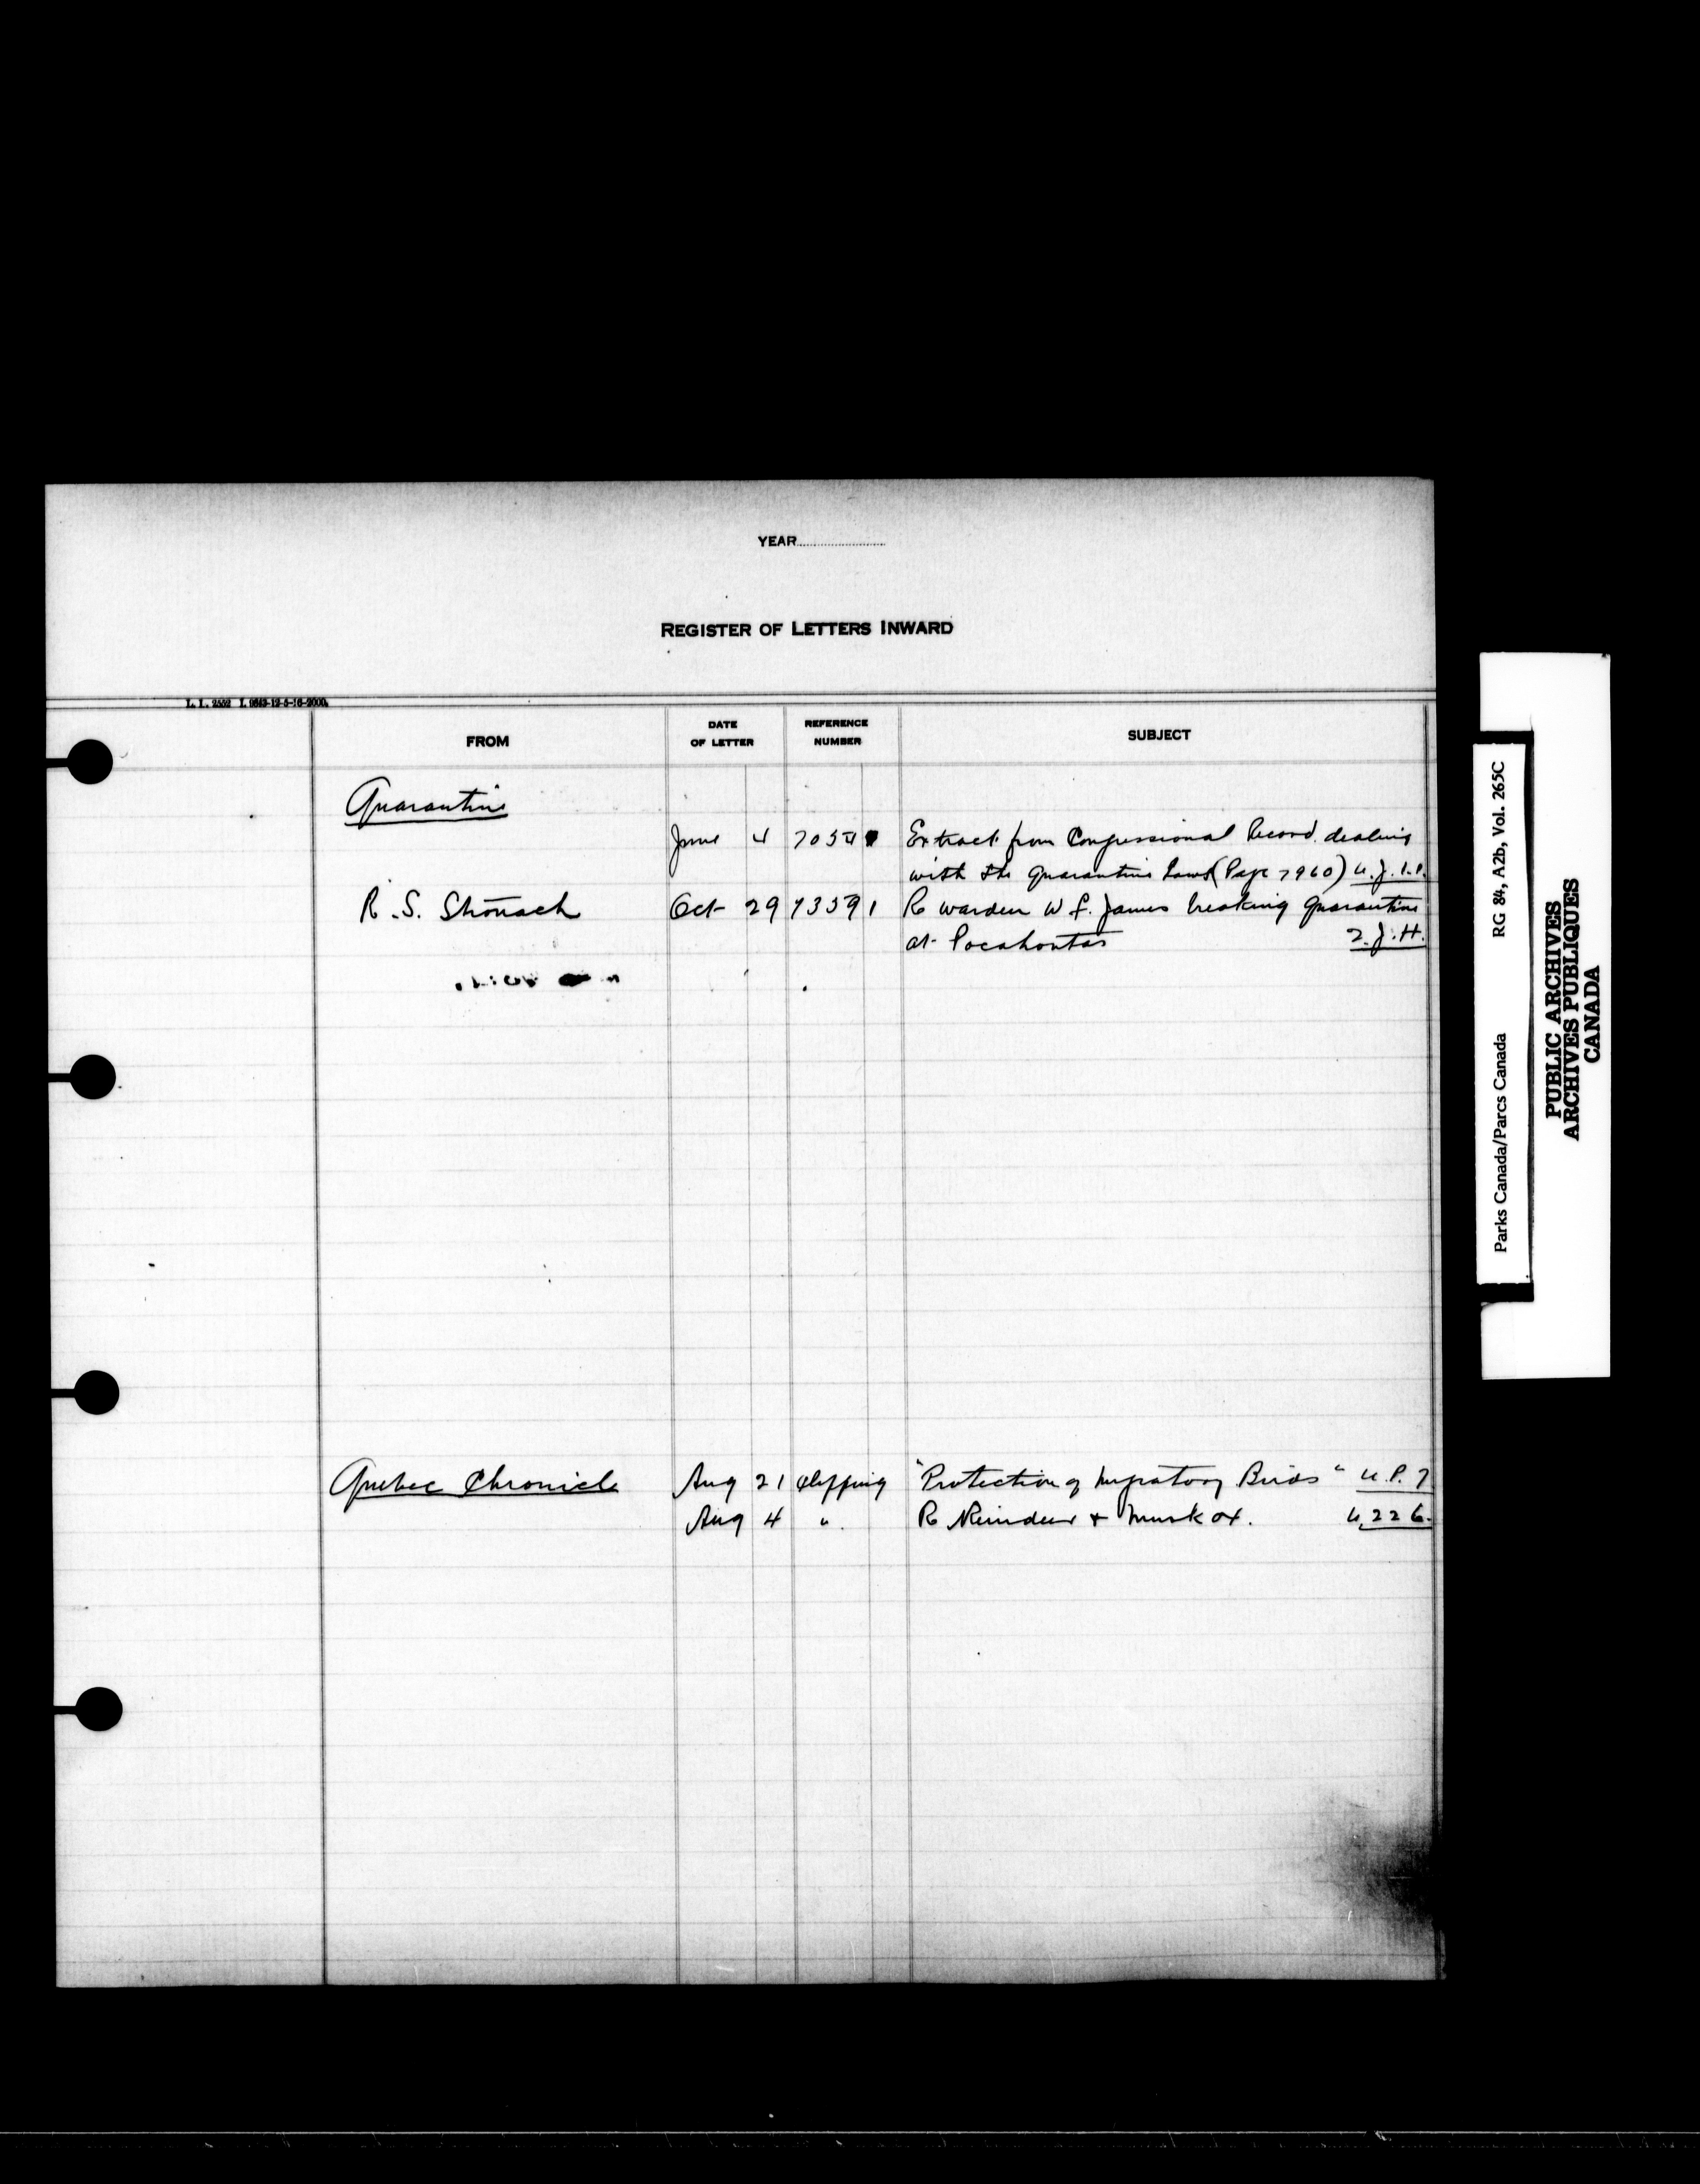 YEAR
REGISTER OF LETTERS INWARD
L. L. 2552 I. 9843-12-5-16-2000.
FROM DATE OF LETTER REFERENCE NUMBER SUBJECT
Quarantine
June 4 7054 Extract from Congressional Record dealing
with the Quarantine Laws (Page 7960) U.J.I.P.
R.S. Stronach Oct 29 73591 Re warden W.F. James breaking Quarantine
at Pocahontas 2.J.H.
Quebec Chronicle Aug 21 clipping "Protection of Migratory Birds" U.P.7
Aug 4 " Re Reindeer & Musk ox. U.226.
Parks Canada/Parcs Canada RG 84, A2b, Vol. 265C
PUBLIC ARCHIVES
ARCHIVES PUBLIQUES
CANADA